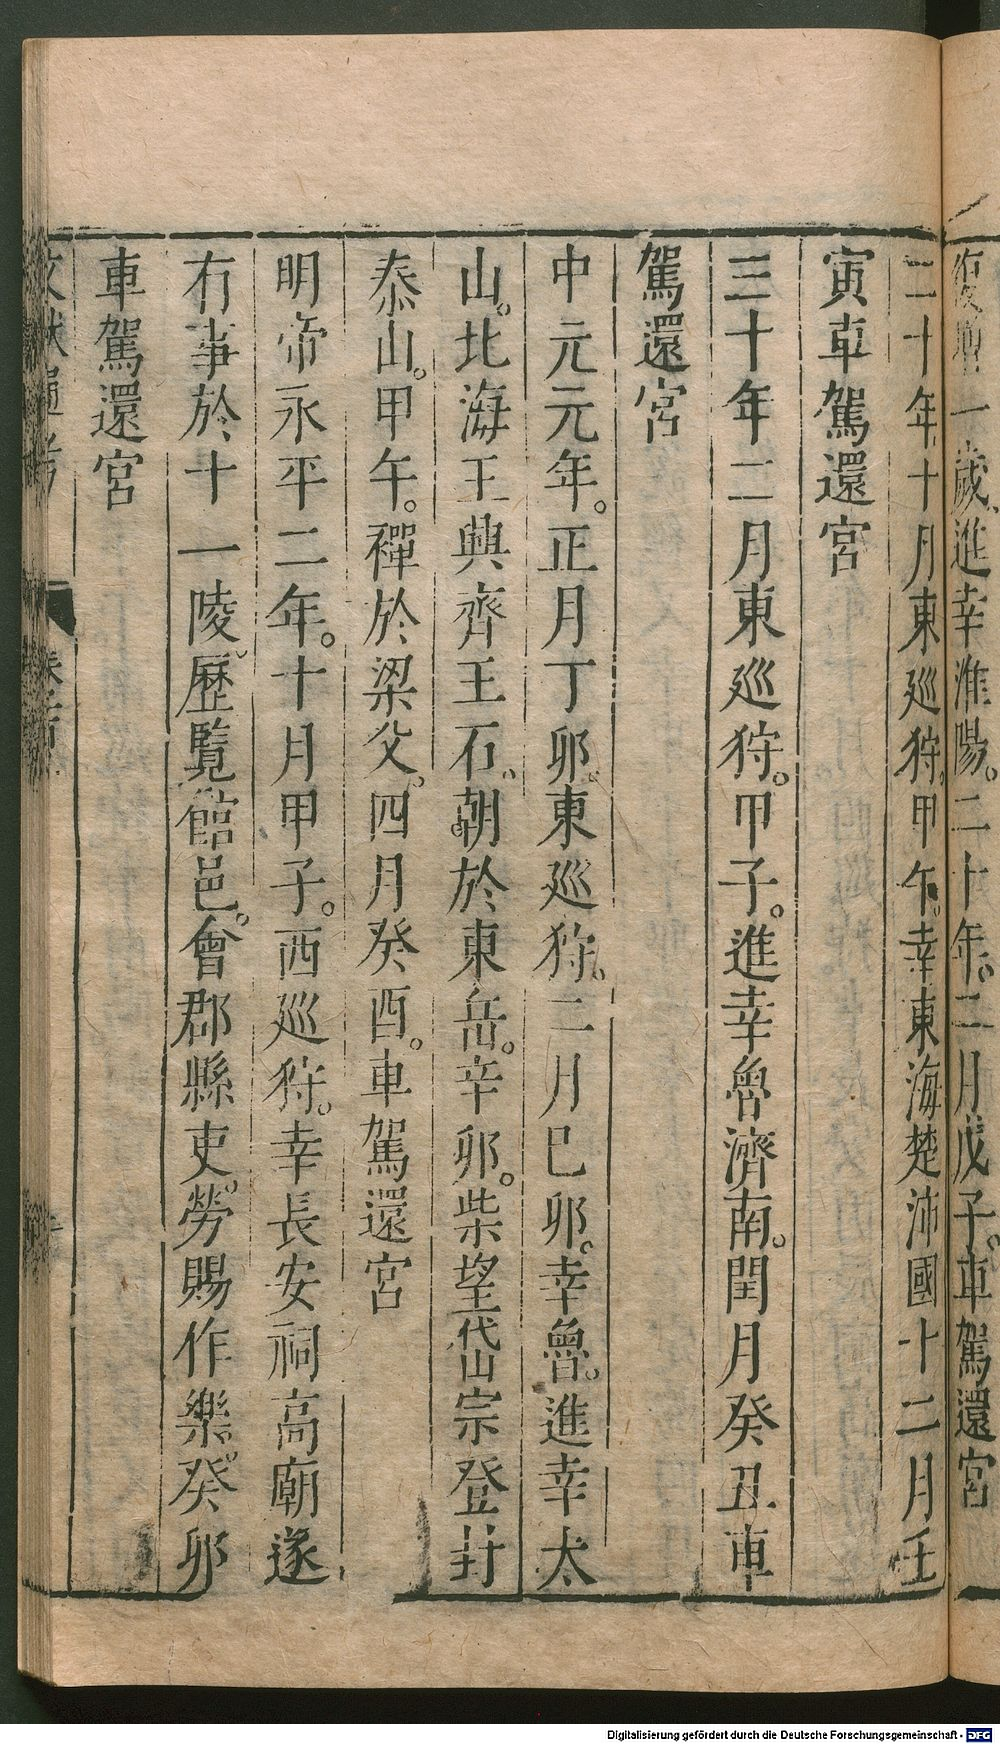 復 一歲進幸淮陽。二十年。二月戊子。車駕還宮
二十年十月東廵狩。甲午。幸東海楚沛國十二月壬
寅車駕還宮
三十年二月東廵狩。甲子。進幸魯濟南。閏月癸丑車
駕還宮
中元元年。正月丁卯。東廵狩。二月巳卯。幸魯。進幸太
山。北海王興齊王石。朝於東岳。辛卯。柴望岱宗登封
泰山。甲午。禪於梁父。四月癸酉。車駕還宮
明帝永平二年。十月甲子。西廵狩。幸長安祠高廟遂
有事於十一陵。歷覽館邑。會郡縣吏。勞賜作樂。癸卯
車駕還宮
文獻通考
Digitalisierung gefördert durch die Deutsche Forschungsgemeinschaft - DFG